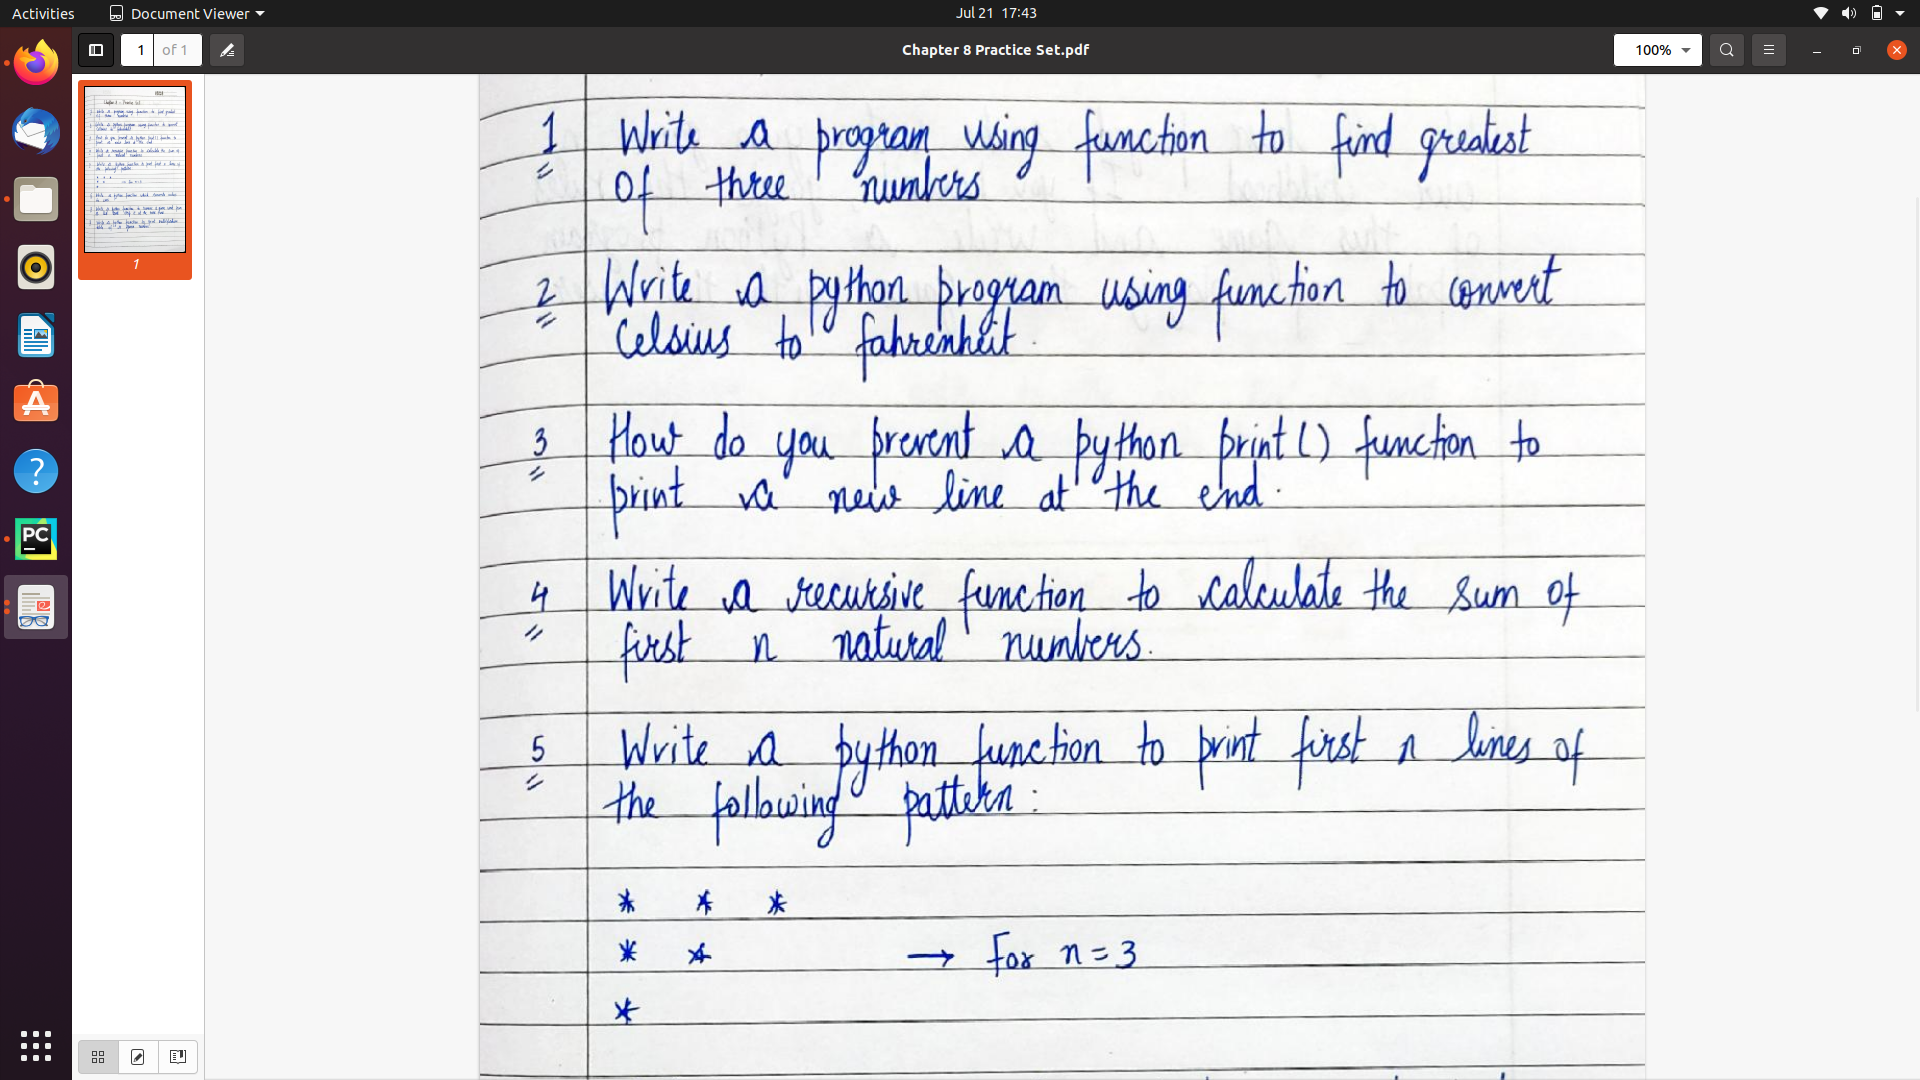 Activities
Document Viewer
Jul 21 17:43
1 of 1
Chapter 8 Practice Set.pdf
100%
1 Write a program using function to find greatest
of three numbers
2 Write a python program using function to convert
Celsius to fahrenheit.
3 How do you prevent a python print() function to
print a new line at the end.
4 Write a recursive function to calculate the sum of
first n natural numbers.
5 Write a python function to print first n lines of
the following pattern:
* * *
* * → For n = 3
*
1
PC